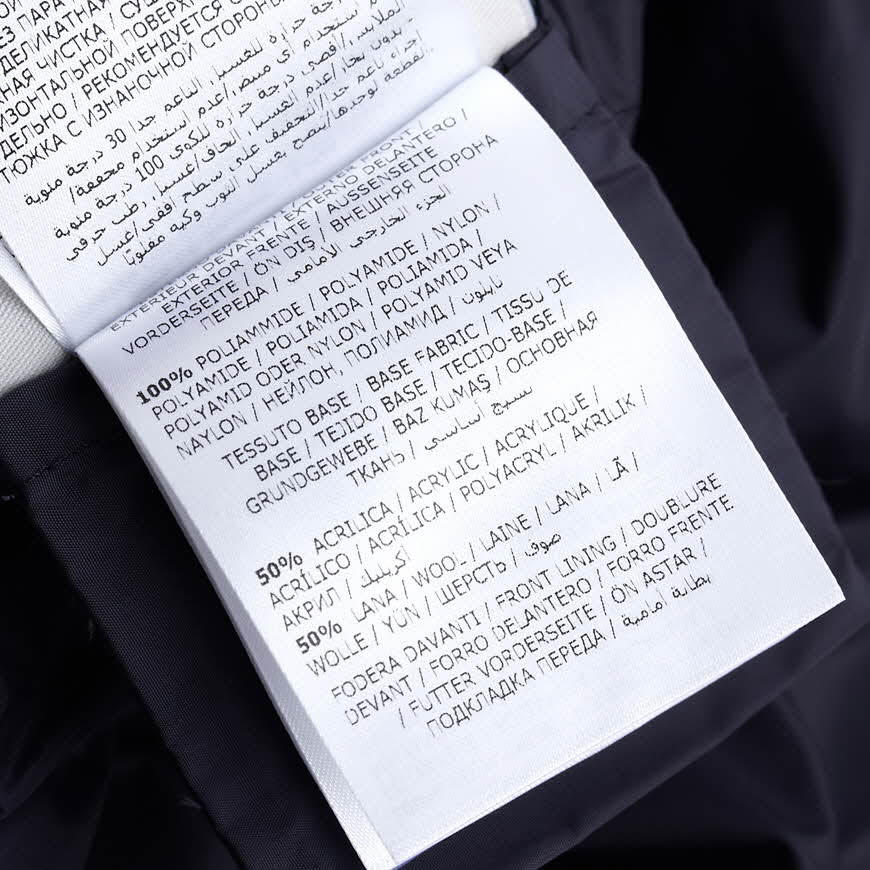 ОЙ
БЕЗ ПАРА
ДЕЛИКАТНАЯ
НАЯ ЧИСТКА / СУШ
ИЗОНТАЛЬНОЙ ПОВЕРХН
ДЕЛЬНО / РЕКОМЕНДУЕТСЯ С
ТЮЖКА С ИЗНАНОЧНОЙ СТОРОНЫ
درجة حرارة للغسيل الناعم جدا 30 درجة مئوية
FRONT /
EXTÉRIEUR DEVANT / EXTERNO DELANTERO /
EXTERIOR FRENTE / AUSSENSEITE
VORDERSEITE / ÖN DIŞ / ВНЕШНЯЯ СТОРОНА
ПЕРЕДА / الجزء الخارجي الأمامي
100% POLIAMMIDE / POLYAMIDE / NYLON /
POLYAMIDE / POLIAMIDA / POLIAMIDA /
POLYAMID ODER NYLON / POLYAMID VEYA
NAYLON / НЕЙЛОН, ПОЛИАМИД / نايلون
TESSUTO BASE / BASE FABRIC / TISSU DE
BASE / TEJIDO BASE / TECIDO-BASE /
GRUNDGEWEBE / BAZ KUMAŞ / ОСНОВНАЯ
ТКАНЬ / نسيج أساسي
50% ACRILICA / ACRYLIC / ACRYLIQUE /
ACRÍLICO / ACRÍLICA / POLYACRYL / AKRILIK /
АКРИЛ / أكريليك
50% LANA / WOOL / LAINE / LANA / LÃ /
WOLLE / YÜN / ШЕРСТЬ / صوف
FODERA DAVANTI / FRONT LINING / DOUBLURE
DEVANT / FORRO DELANTERO / FORRO FRENTE
/ FUTTER VORDERSEITE / ÖN ASTAR /
ПОДКЛАДКА ПЕРЕДА / بطانة أمامية